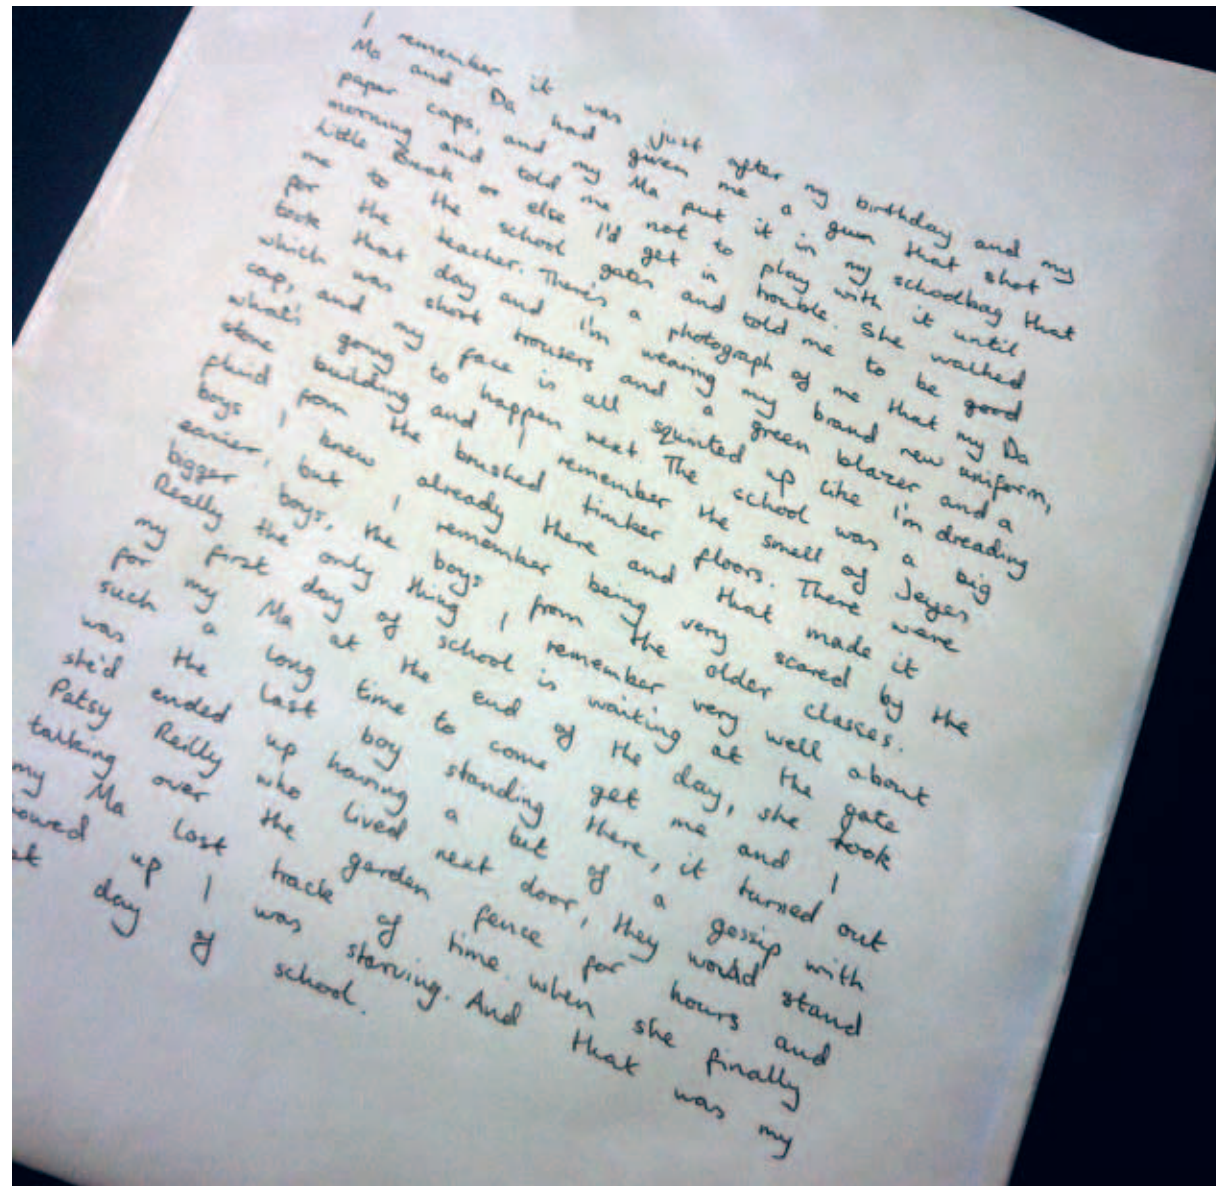 I remember it was just after my birthday and my
Ma and Da had given me a gun that shot
paper caps, and my Ma put it in my schoolbag that
morning and told me not to play with it until
little break or else I'd get in trouble. She walked
me to the school gates and told me to be good
for the teacher. There's a photograph of me that my Da
took that day and I'm wearing my brand new uniform,
which was short trousers and a green blazer and a
cap, and my face is all squinted up like I'm dreading
what's going to happen next. The school was a big
stone building and I remember the smell of Jeyes
fluid from the brushed timber floors. There were
boys I knew already there and that made it
easier, but I remember being very scared by the
bigger boys, the boys from the older classes.
Really the only thing I remember very well about
my first day of school is waiting at the gate
for my Ma at the end of the day, she took
such a long time to come get me and I
was the last boy standing there, it turned out
she'd ended up having a bit of a gossip with
Patsy Reilly who lived next door, they would stand
talking over the garden fence for hours and
my Ma lost track of time. when she finally
owed up I was starving. And that was my
st day of school.